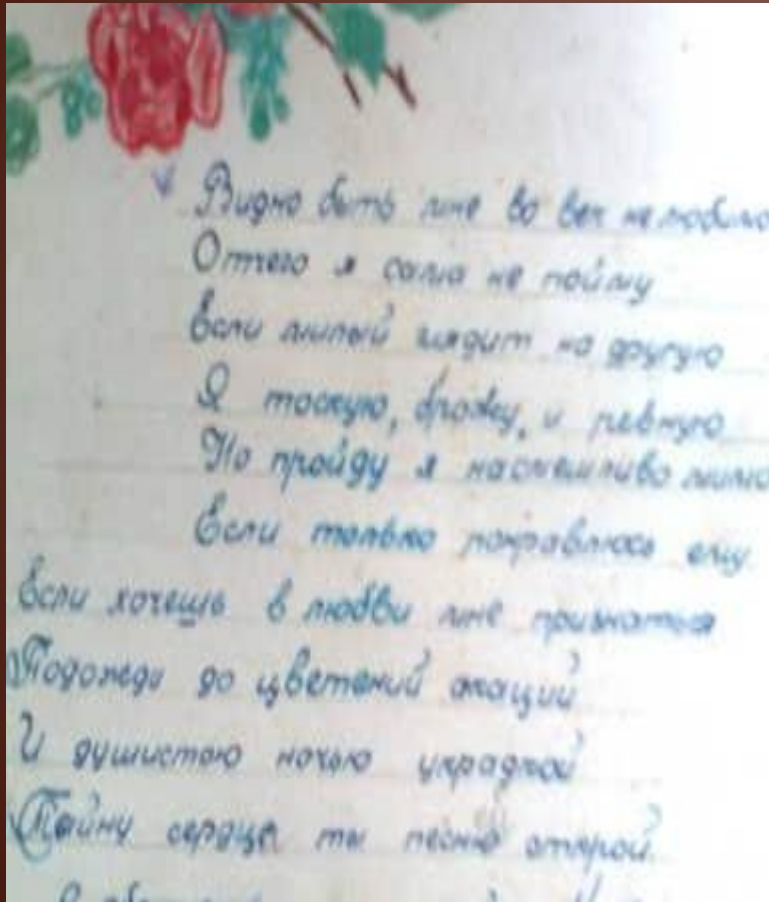 Видно быть мне во век нелюбимо
Отчего я сама не пойму
Если милый глядит на другую
Я тоскую, брожу, и ревную
Но пройду я насмешливо мимо
Если только понравлюсь ему.
Если хочешь в любви мне признаться
Подожди до цветений акаций
И душистою ночью украдкой
Тайну сердца ты песне открой.